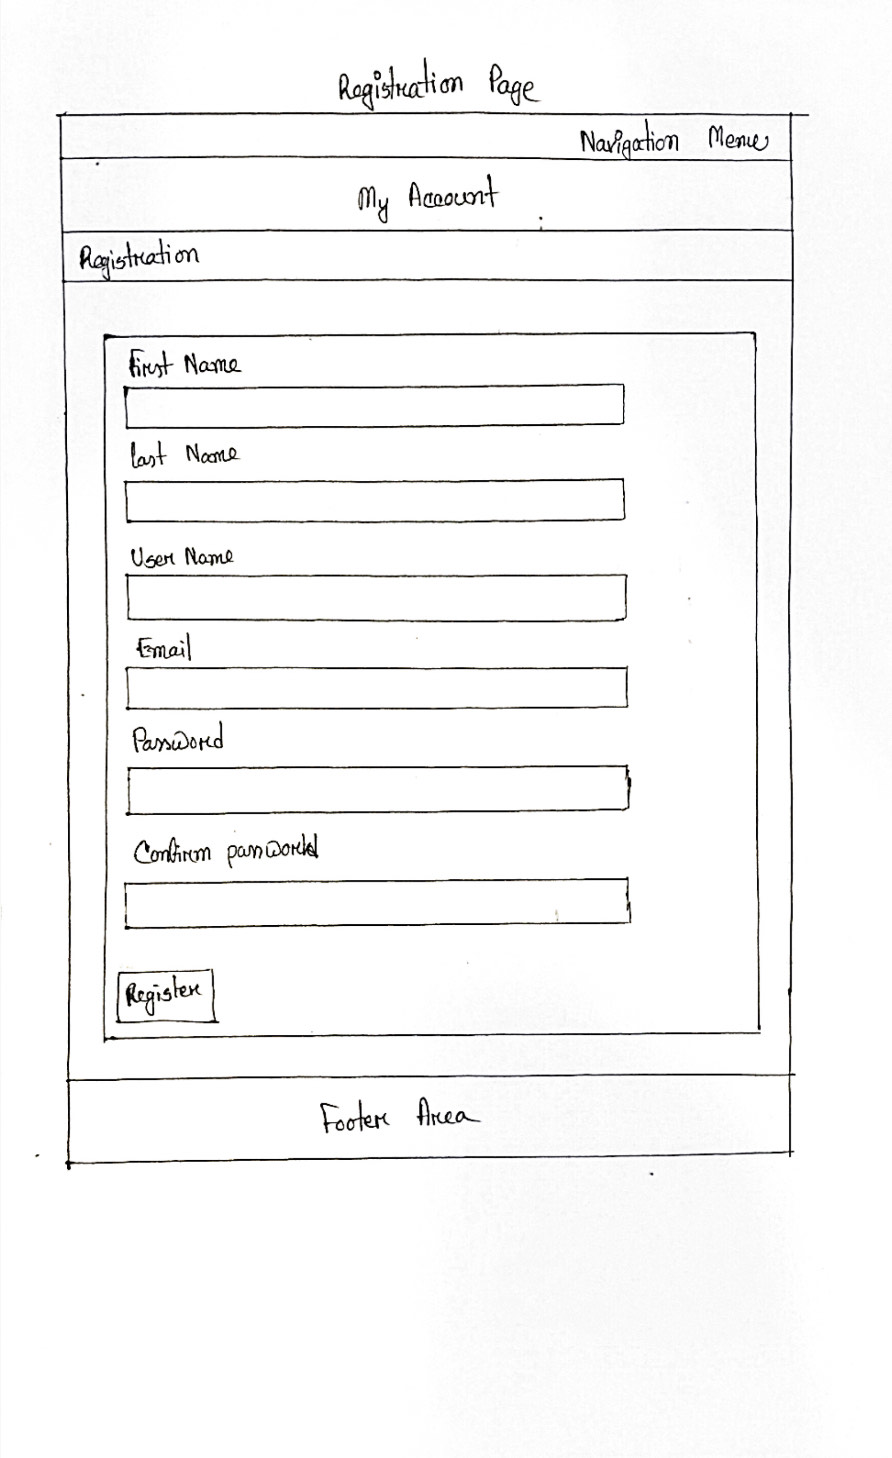 Registration Page
Navigation Menu
My Account
Registration
First Name
Last Name
User Name
Email
Password
Confirm password
Register
Footer Area